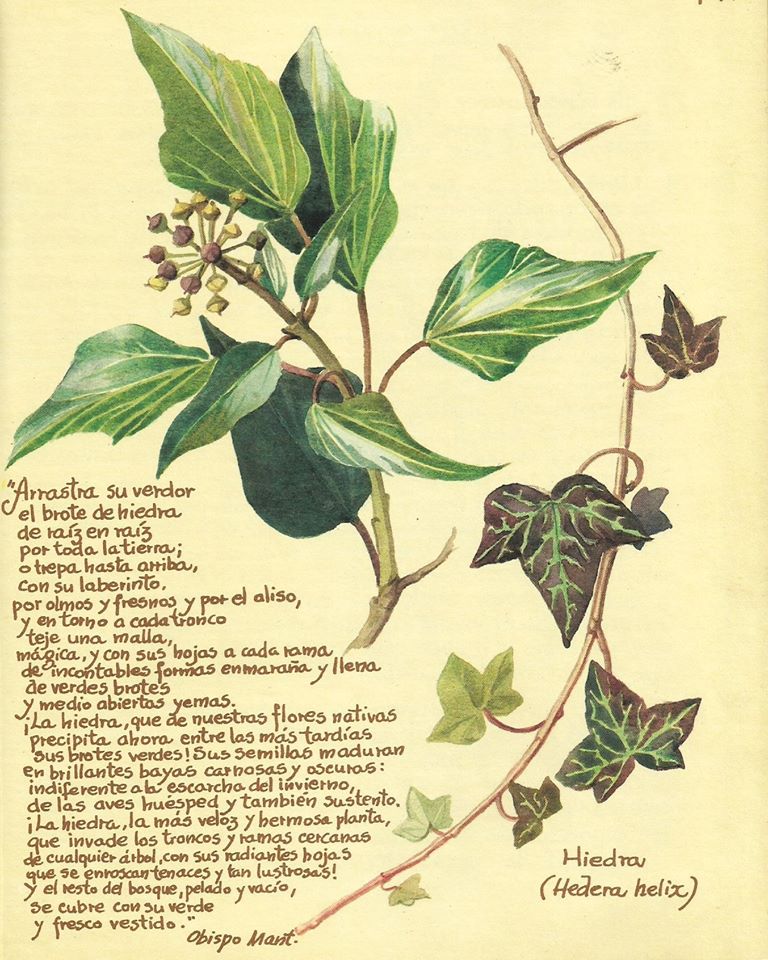 "Arrastra su verdor
el brote de hiedra
de raíz en raíz
por toda la tierra;
o trepa hasta arriba,
con su laberinto,
por olmos y fresnos y por el aliso,
y en torno a cada tronco
teje una malla,
mágica, y con sus hojas a cada rama
de incontables formas enmaraña y llena
de verdes brotes
y medio abiertas yemas.
¡La hiedra, que de nuestras flores nativas
precipita ahora entre las más tardías
sus brotes verdes! Sus semillas maduran
en brillantes bayas carnosas y oscuras:
indiferente a la escarcha del invierno,
de las aves huésped y también sustento.
¡La hiedra, la más veloz y hermosa planta,
que invade los troncos y ramas cercanas
de cualquier árbol, con sus radiantes hojas
que se enroscan tenaces y tan lustrosas!
Y el resto del bosque, pelado y vacío,
se cubre con su verde
y fresco vestido."
Obispo Mant.
Hiedra
(Hedera helix)